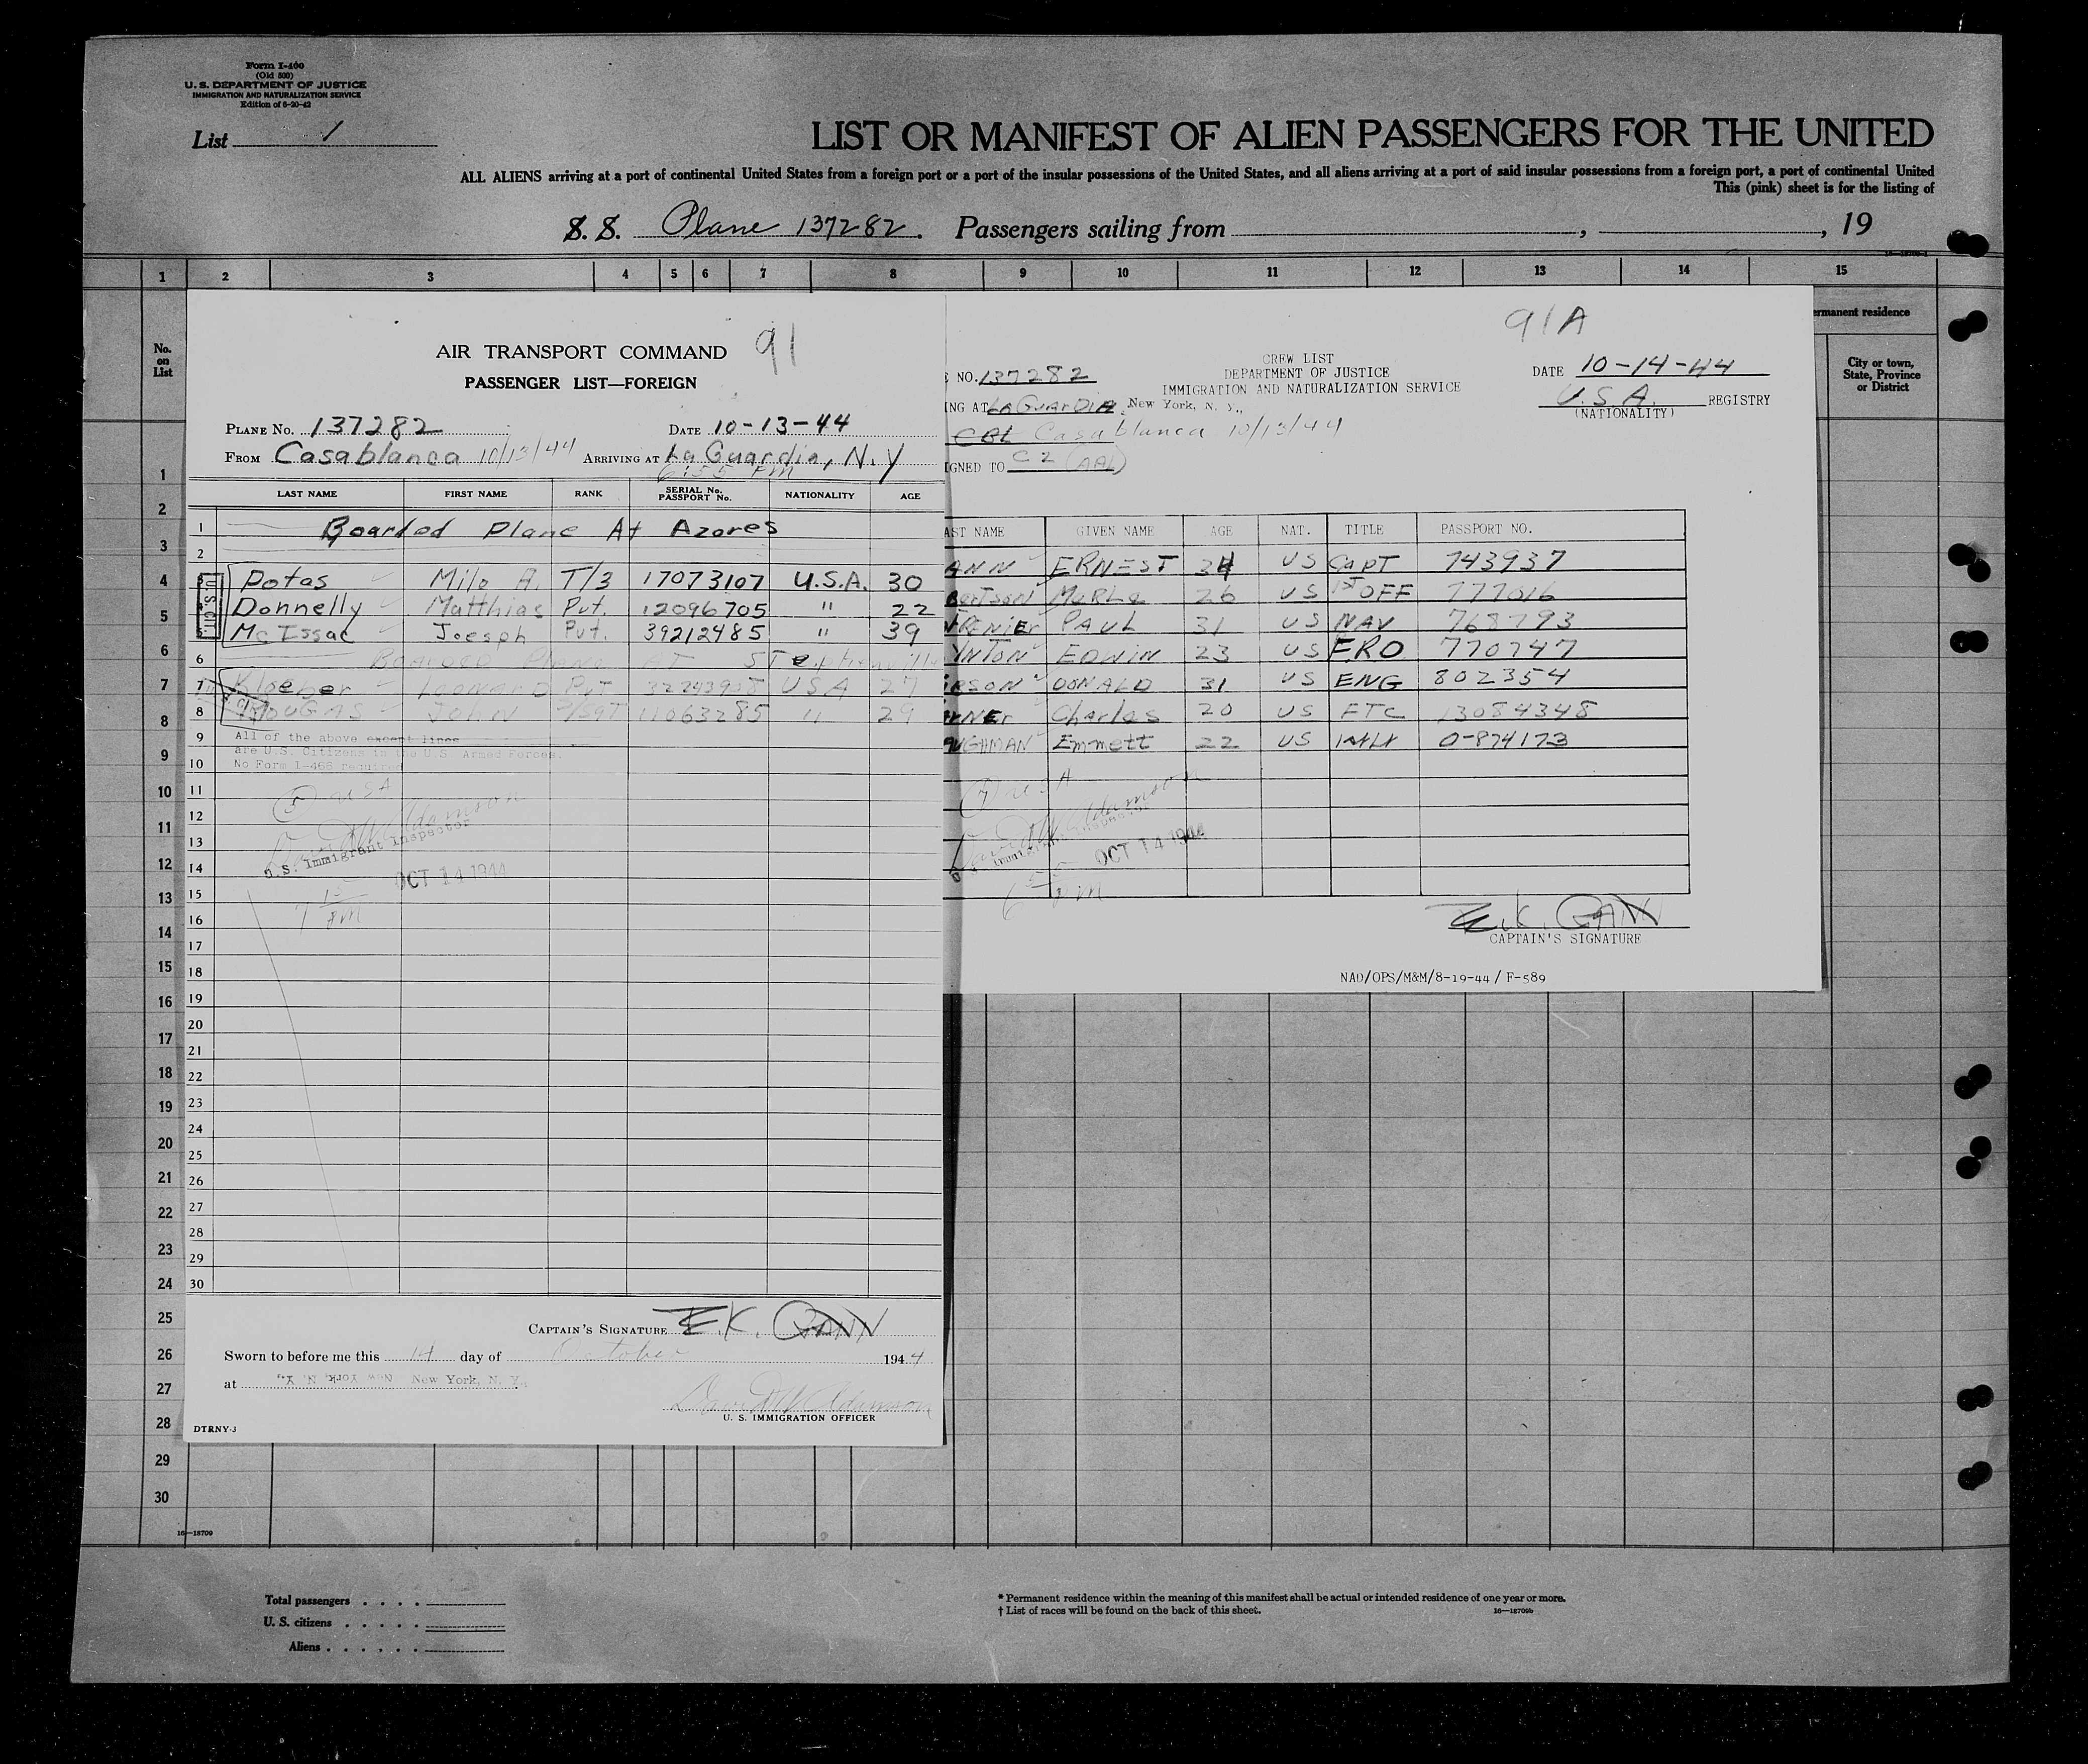 Form I-460
(Old 500)
U. S. DEPARTMENT OF JUSTICE
IMMIGRATION AND NATURALIZATION SERVICE
Edition of 6-20-42
List 1
LIST OR MANIFEST OF ALIEN PASSENGERS FOR THE UNITED
ALL ALIENS arriving at a port of continental United States from a foreign port or a port of the insular possessions of the United States, and all aliens arriving at a port of said insular possessions from a foreign port, a port of continental United
This (pink) sheet is for the listing of
S. S. Plane 137282. Passengers sailing from , , 19
1 2 3 4 5 6 7 8 9 10 11 12 13 14 15
No. on List
ermanent residence
City or town, State, Province or District
AIR TRANSPORT COMMAND 91
PASSENGER LIST—FOREIGN
PLANE NO. 137282 DATE 10-13-44
FROM Casablanca 10/13/44 ARRIVING AT La Guardia, N.Y
6:55 PM
LAST NAME FIRST NAME RANK SERIAL No. PASSPORT No. NATIONALITY AGE
1 Boarded Plane At Azores
2
U.S. CIT.
Potas Milo A. T/3 17073107 U.S.A. 30
Donnelly Matthias Pvt. 12096705 " 22
McIssac Joesph Pvt. 39212485 " 39
6 Boarded Plane AT Stephenville
7 Kloeber Leonard Pvt USA 27
8 John 11063285 " 29
9 All of the above except lines
are U.S. Citizens in the U.S. Armed Forces.
10 No Form I-466 required
11 5 USA
12
13 U.S. Immigrant Inspector
14 OCT 14 1944
15
16
17
18
19
20
21
22
23
24
25
26
27
28
29
30
CAPTAIN'S SIGNATURE E.K. GANN
Sworn to before me this 14 day of October 1944
at New York, N. Y.
U. S. IMMIGRATION OFFICER
DTRNY-3
91A
CREW LIST
DEPARTMENT OF JUSTICE
IMMIGRATION AND NATURALIZATION SERVICE
DATE 10-14-44
U.S.A. REGISTRY
(NATIONALITY)
E NO. 137282
ING AT La Guardia, New York, N. Y.,
CBL Casablanca 10/13/44
IGNED TO C2 (AAL)
AST NAME GIVEN NAME AGE NAT. TITLE PASSPORT NO.
ANN ERNEST 34 US CAPT 743937
BERTSON MERLE 26 US 1ST OFF 777016
RENIER PAUL 31 US NAV 768793
YNTON EDWIN 23 US F.R.O 770747
ERSON DONALD 31 US ENG 802354
RNER Charles 20 US FTC 13084348
UGHMAN Emmett 22 US 0-874173
7 USA
OCT 14 1944
E.K. GANN
CAPTAIN'S SIGNATURE
NAD/OPS/M&M/8-19-44/ F-589
1
2
3
4
5
6
7
8
9
10
11
12
13
14
15
16
17
18
19
20
21
22
23
24
25
26
27
28
29
30
16—18709
Total passengers
U. S. citizens
Aliens
* Permanent residence within the meaning of this manifest shall be actual or intended residence of one year or more.
† List of races will be found on the back of this sheet. 16—18709b